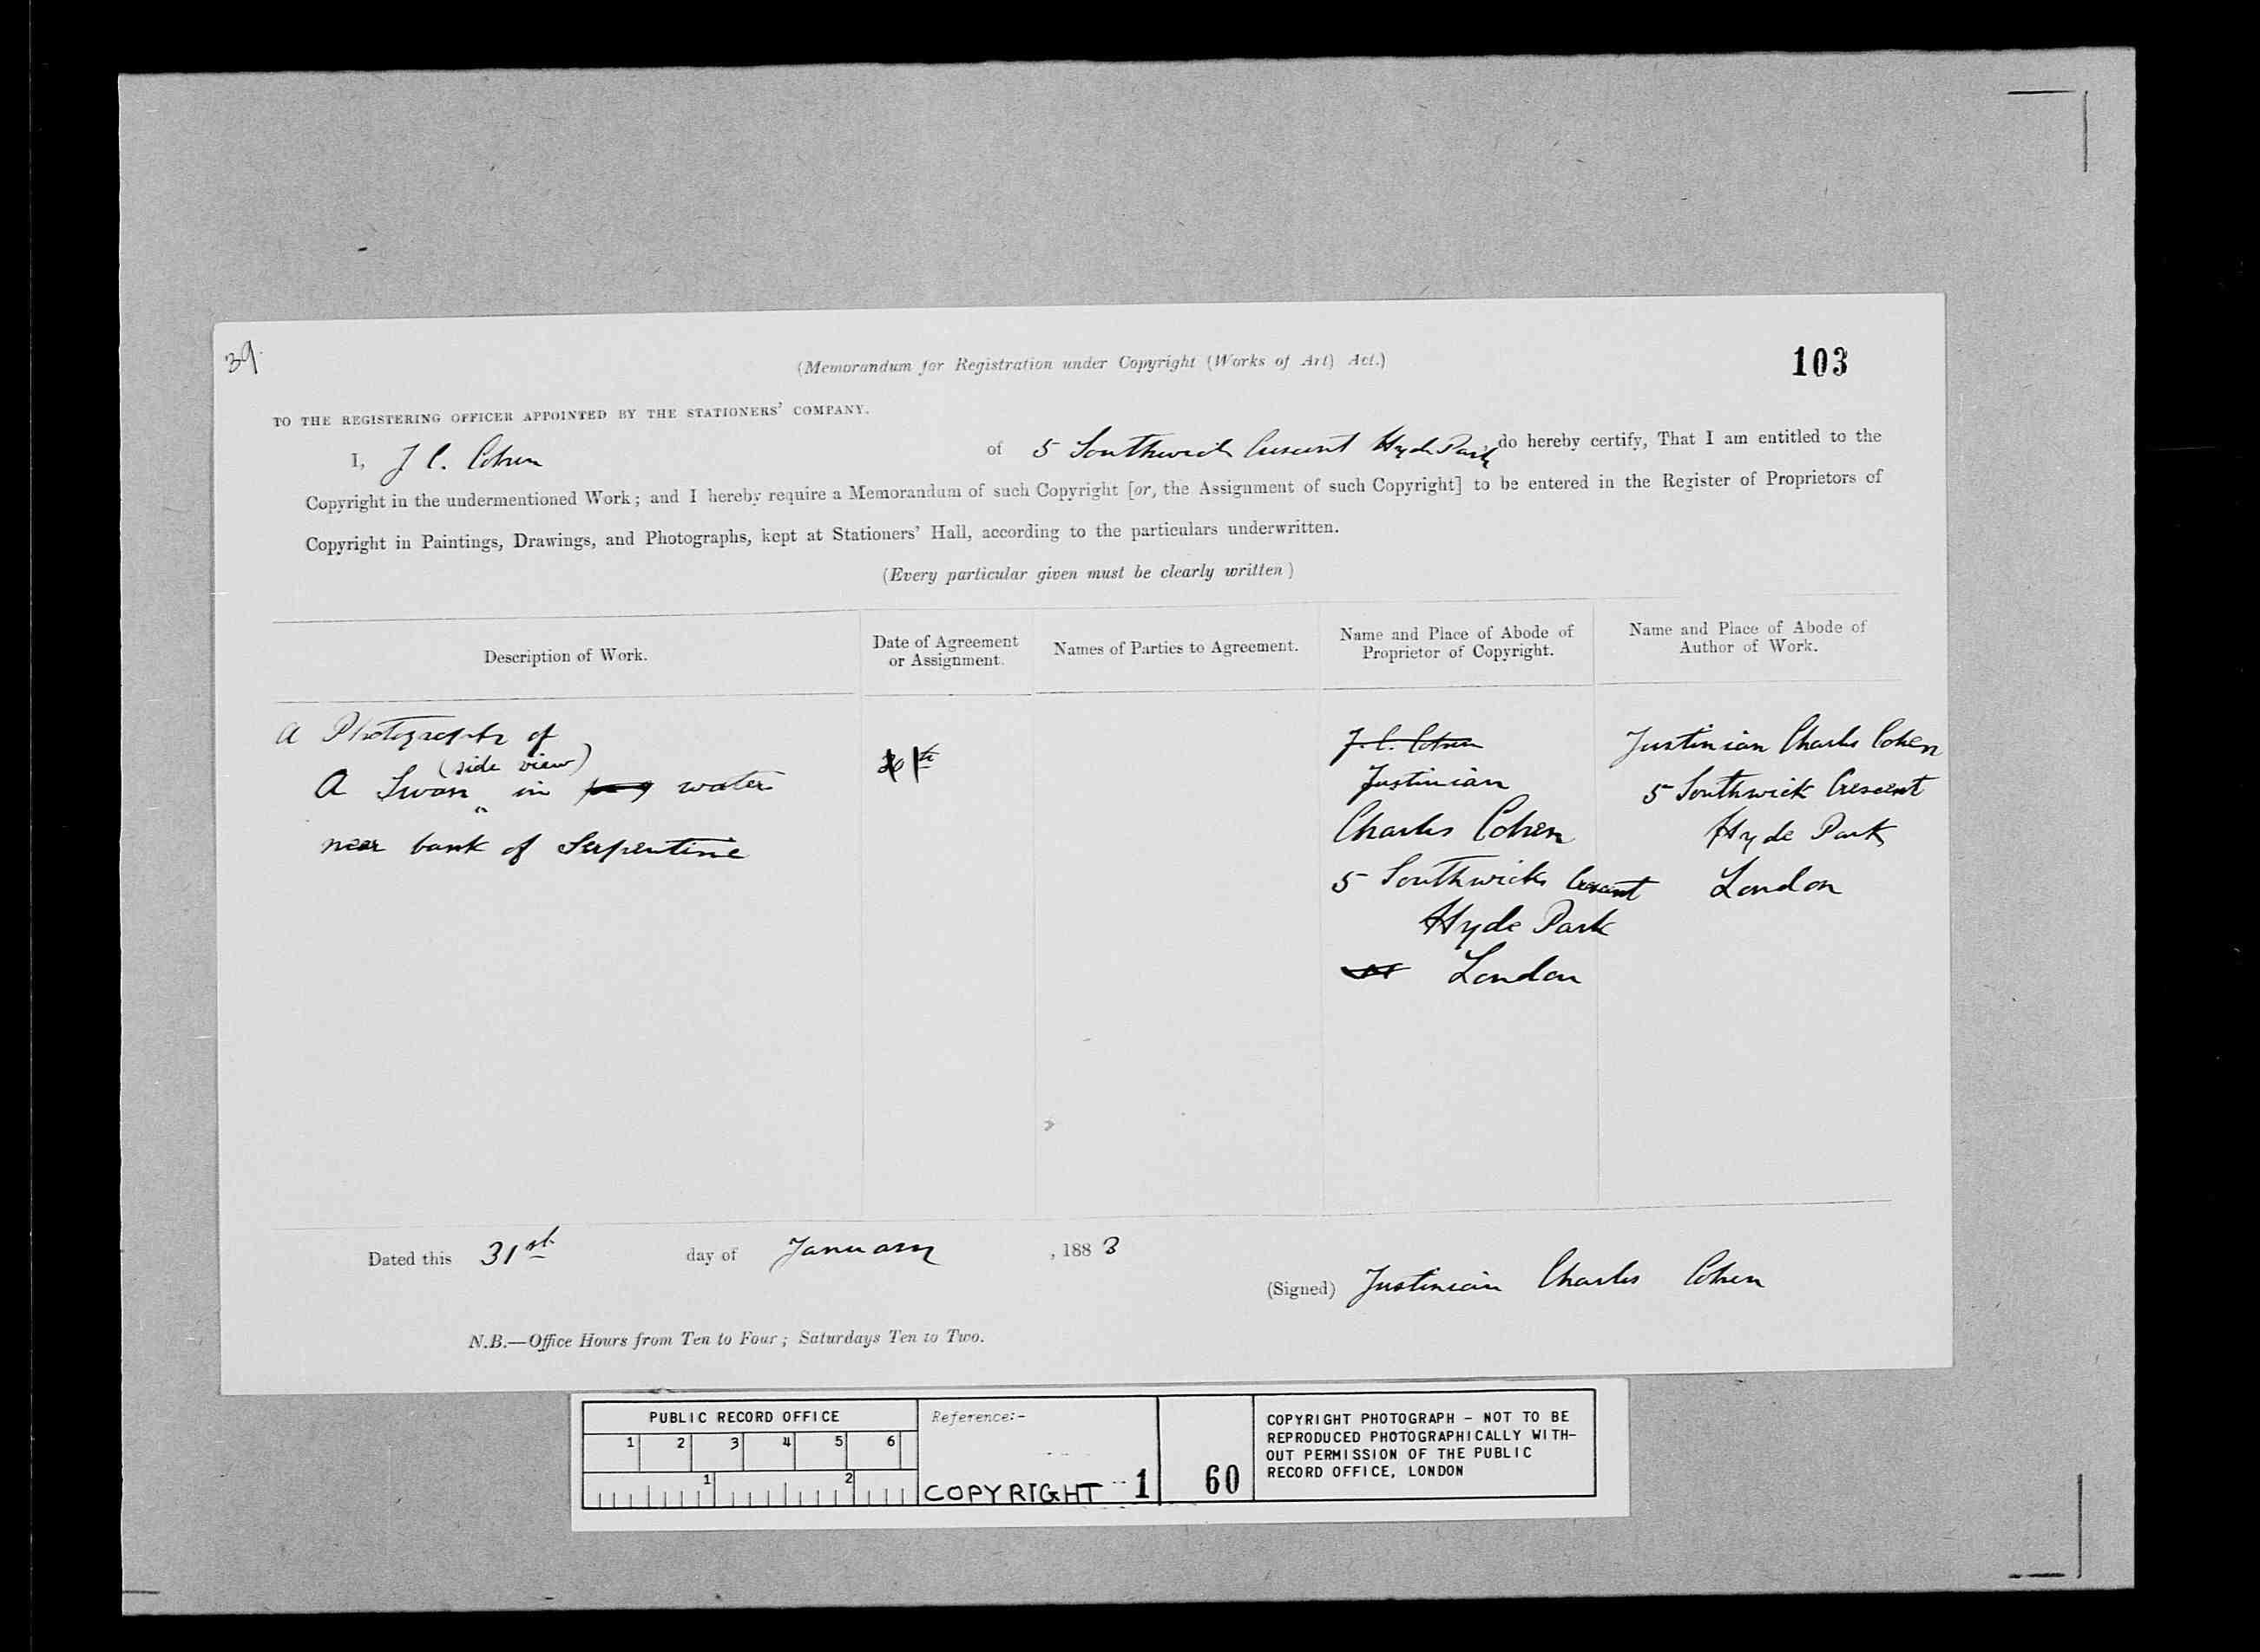 39
(Memorandum for Registration under Copyright (Works of Art) Act.)
103
TO THE REGISTERING OFFICER APPOINTED BY THE STATIONERS' COMPANY.
I, J C. Cohen of 5 Southwick Crescent Hyde Park, do hereby certify, That I am entitled to the
Copyright in the undermentioned Work; and I hereby require a Memorandum of such Copyright [or, the Assignment of such Copyright] to be entered in the Register of Proprietors of
Copyright in Paintings, Drawings, and Photographs, kept at Stationers' Hall, according to the particulars underwritten.
(Every particular given must be clearly written)
Description of Work.
Date of Agreement
or Assignment.
Names of Parties to Agreement.
Name and Place of Abode of
Proprietor of Copyright.
Name and Place of Abode of
Author of Work.
A Photograph of
(side view)
A Swan in water
near bank of Serpentine
J. C. Cohen
Justinian
Charles Cohen
5 Southwick Crescent
Hyde Park
London
Justinian Charles Cohen
5 Southwick Crescent
Hyde Park
London
Dated this 31st day of January, 1883
(Signed) Justinian Charles Cohen
N.B.—Office Hours from Ten to Four; Saturdays Ten to Two.
PUBLIC RECORD OFFICE
1 2 3 4 5 6
1 2
Reference:-
COPYRIGHT 1
60
COPYRIGHT PHOTOGRAPH - NOT TO BE
REPRODUCED PHOTOGRAPHICALLY WITH-
OUT PERMISSION OF THE PUBLIC
RECORD OFFICE, LONDON